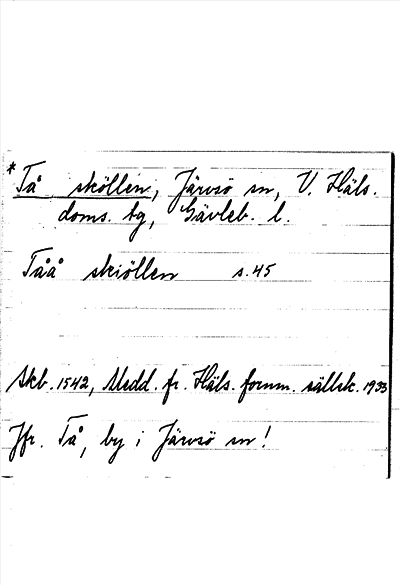 * Tå sköllen, Järvsö sn, V. Häls.
doms. tg, Gävleb. l.
Tåå skiöllen s. 45
Skb. 1542, Medd. fr. Häls. fornm. sällsk. 1933
Jfr. Tå, by i Järvsö sn!